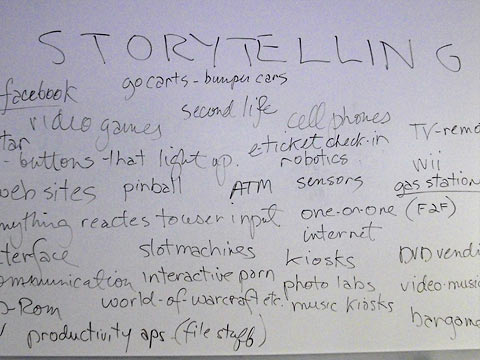 STORYTELLING
go carts - bumper cars
facebook
second life
cell phones
video games
TV-remo
tar
eticket check-in
- buttons - that light up.
robotics
wii
web sites
pinball
ATM
sensors
gas station
nything reactes to user input
one-on-one (F2F)
internet
terface
slotmachines
kiosks
DVD vendi
ommunication
interactive porn
photo labs
video-music
D-Rom
world-of-warcraft etc.
music kiosks
bargame
productivity aps. (file stuff)